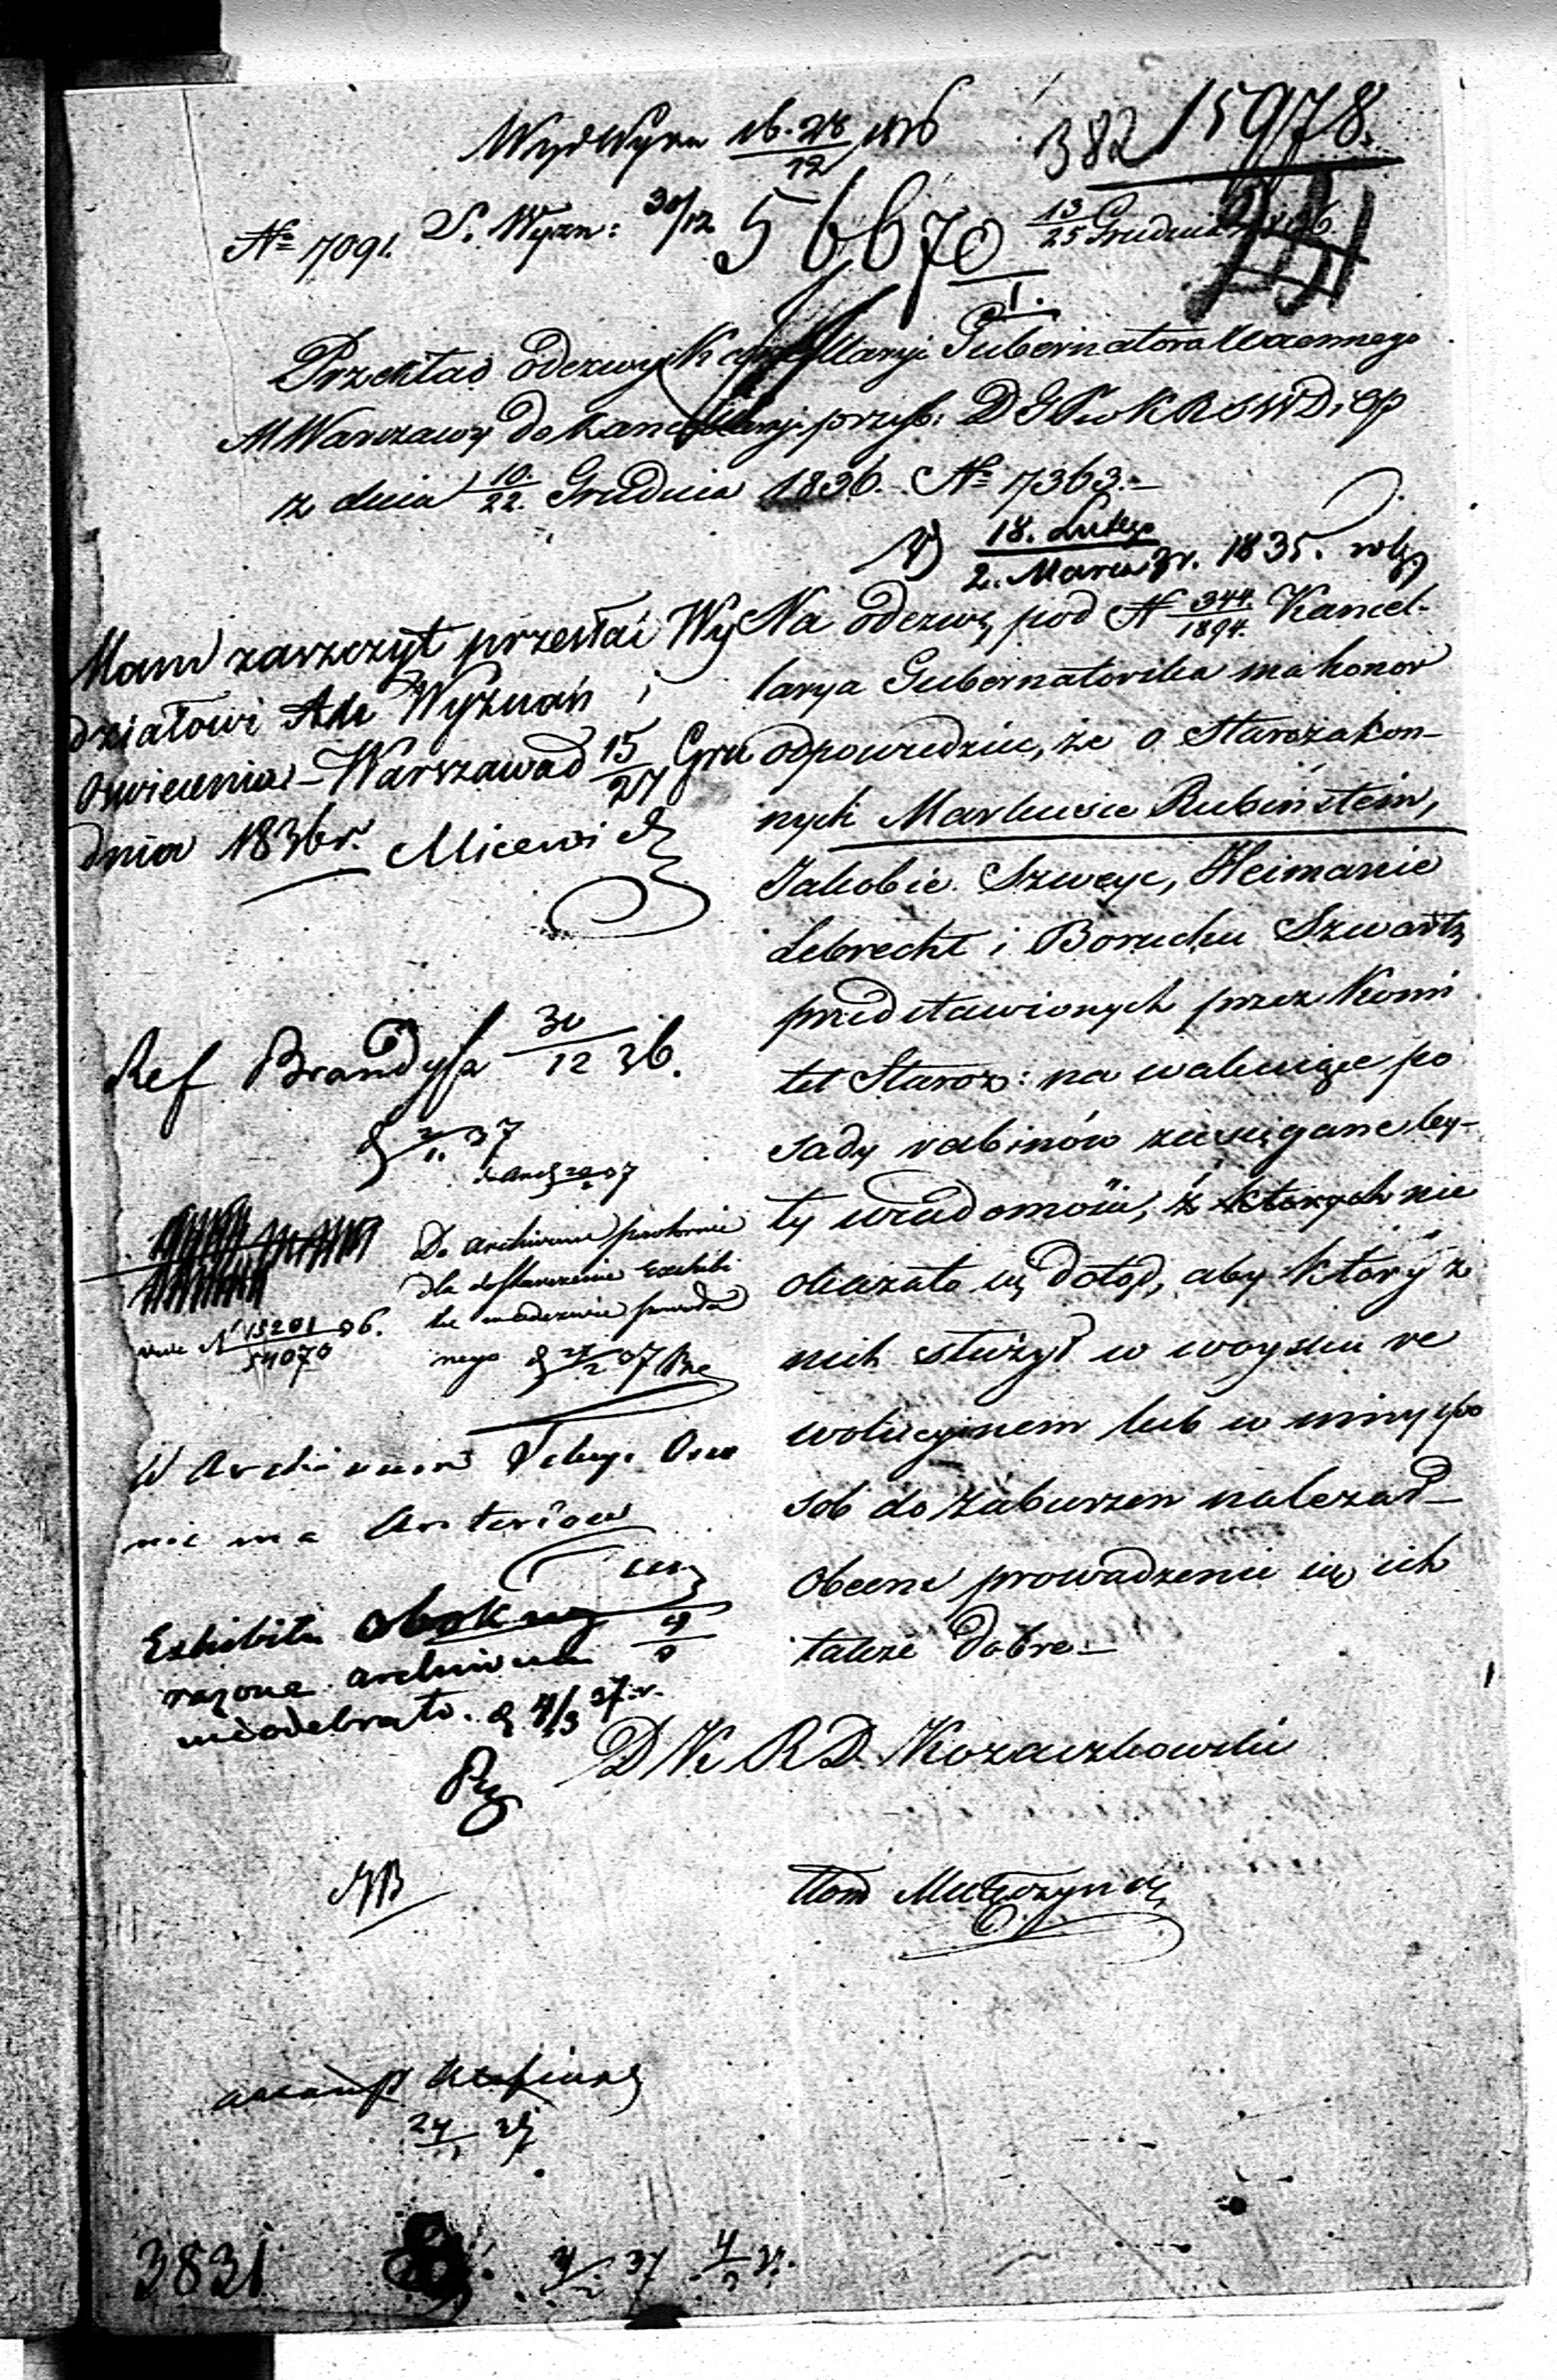 Wyd Wyzn 16.28/12 1836
382 15978.
№ 7091. S. Wyzn: 30/12 56670/1. 13/25 Grudnia 1836.
Przekład odezwy Kancellaryi Gubernatora Woennego
M Warszawy do Kancellaryi przyb: D G Pu K R S W D i OP
z dnia 10./22. Grudnia 1836. № 7363.–
18. Lutego
2. Marca 3 r. 1835.
Na odezwę pod № 344./1894. Kancel-
larya Gubernatorska ma honor
odpowiedzieć, że o Starozakon-
nych Markusie Rubinstein,
Jakobie Szweyc, Heimanie
Lebrecht i Boruchu Szwartz
przedstawionych przez Komi
tet Staroz: na wakuiące po
sady rabinów zasięgane by-
ły wiadomości, z których nie
okazało się dotąd, aby który z
nich służył w woysku re
wolucyjnem lub w inny spo
sob do zaburzen należał –
Obecne prowadzenie się ich
także dobre –
D K R D. Kozaczkowski
tłom
Mam zaszczyt przesłać Wy
działowi Wyznań i
Oswiecenia – Warszawa d 15/27 Gru
dnia 1836 r. Micewicz
Ref Brandysa 30/12 36.
2/1 37
Do Archiwum
dla dostarczenia Exhibi
tu
nego
№ 15201/54070 36.
W Archiwum
nie ma Anteriow
Exhibitu obok wy
rażone Archiwum
nieodebrało. 4/3 37 r.
24/1 37
3831
4/2 37